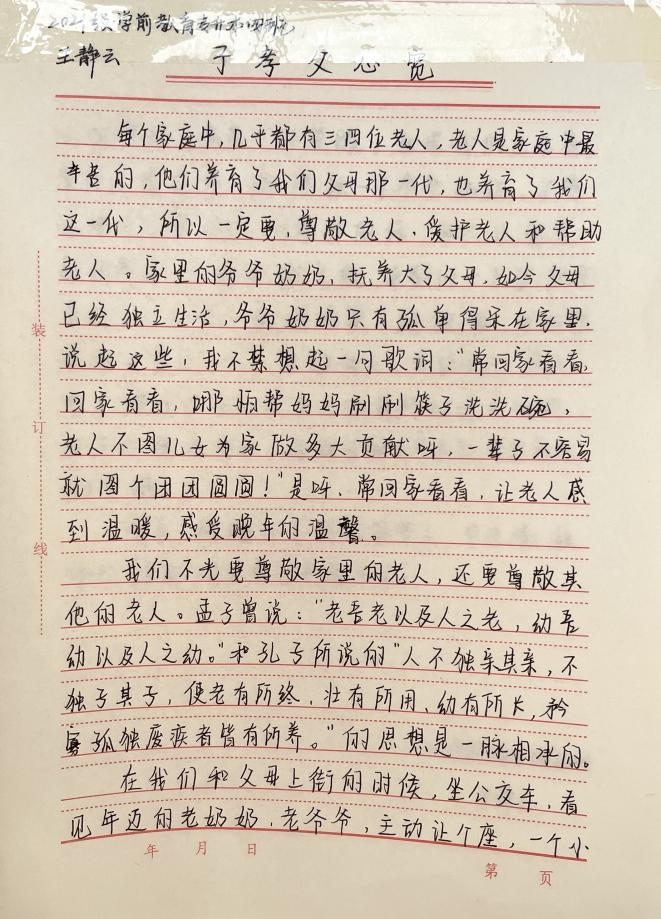 2021级学前教育专升本四班
王静云
子孝父心宽
每个家庭中,几乎都有三四位老人,老人是家庭中最
辛苦的,他们养育了我们父母那一代,也养育了我们
这一代,所以一定要,尊敬老人、爱护老人和帮助
老人。家里的爷爷奶奶,抚养大了父母,如今父母
已经独立生活,爷爷奶奶只有孤单得呆在家里,
说起这些,我不禁想起一句歌词:“常回家看看,
回家看看,哪怕帮妈妈刷刷筷子洗洗碗,
老人不图儿女为家做多大贡献呀,一辈子不容易
就图个团团圆圆!”是呀,常回家看看,让老人感
到温暖,感受晚年的温馨。
我们不光要尊敬家里的老人,还要尊敬其
他的老人。孟子曾说:“老吾老以及人之老,幼吾
幼以及人之幼。”和孔子所说的“人不独亲其亲,不
独子其子,使老有所终,壮有所用、幼有所长,矜
寡孤独废疾者皆有所养。”的思想是一脉相承的。
在我们和父母上街的时候,坐公交车,看
见年迈的老奶奶,老爷爷,主动让个座,一个小
装
订
线
年 月 日
第 页